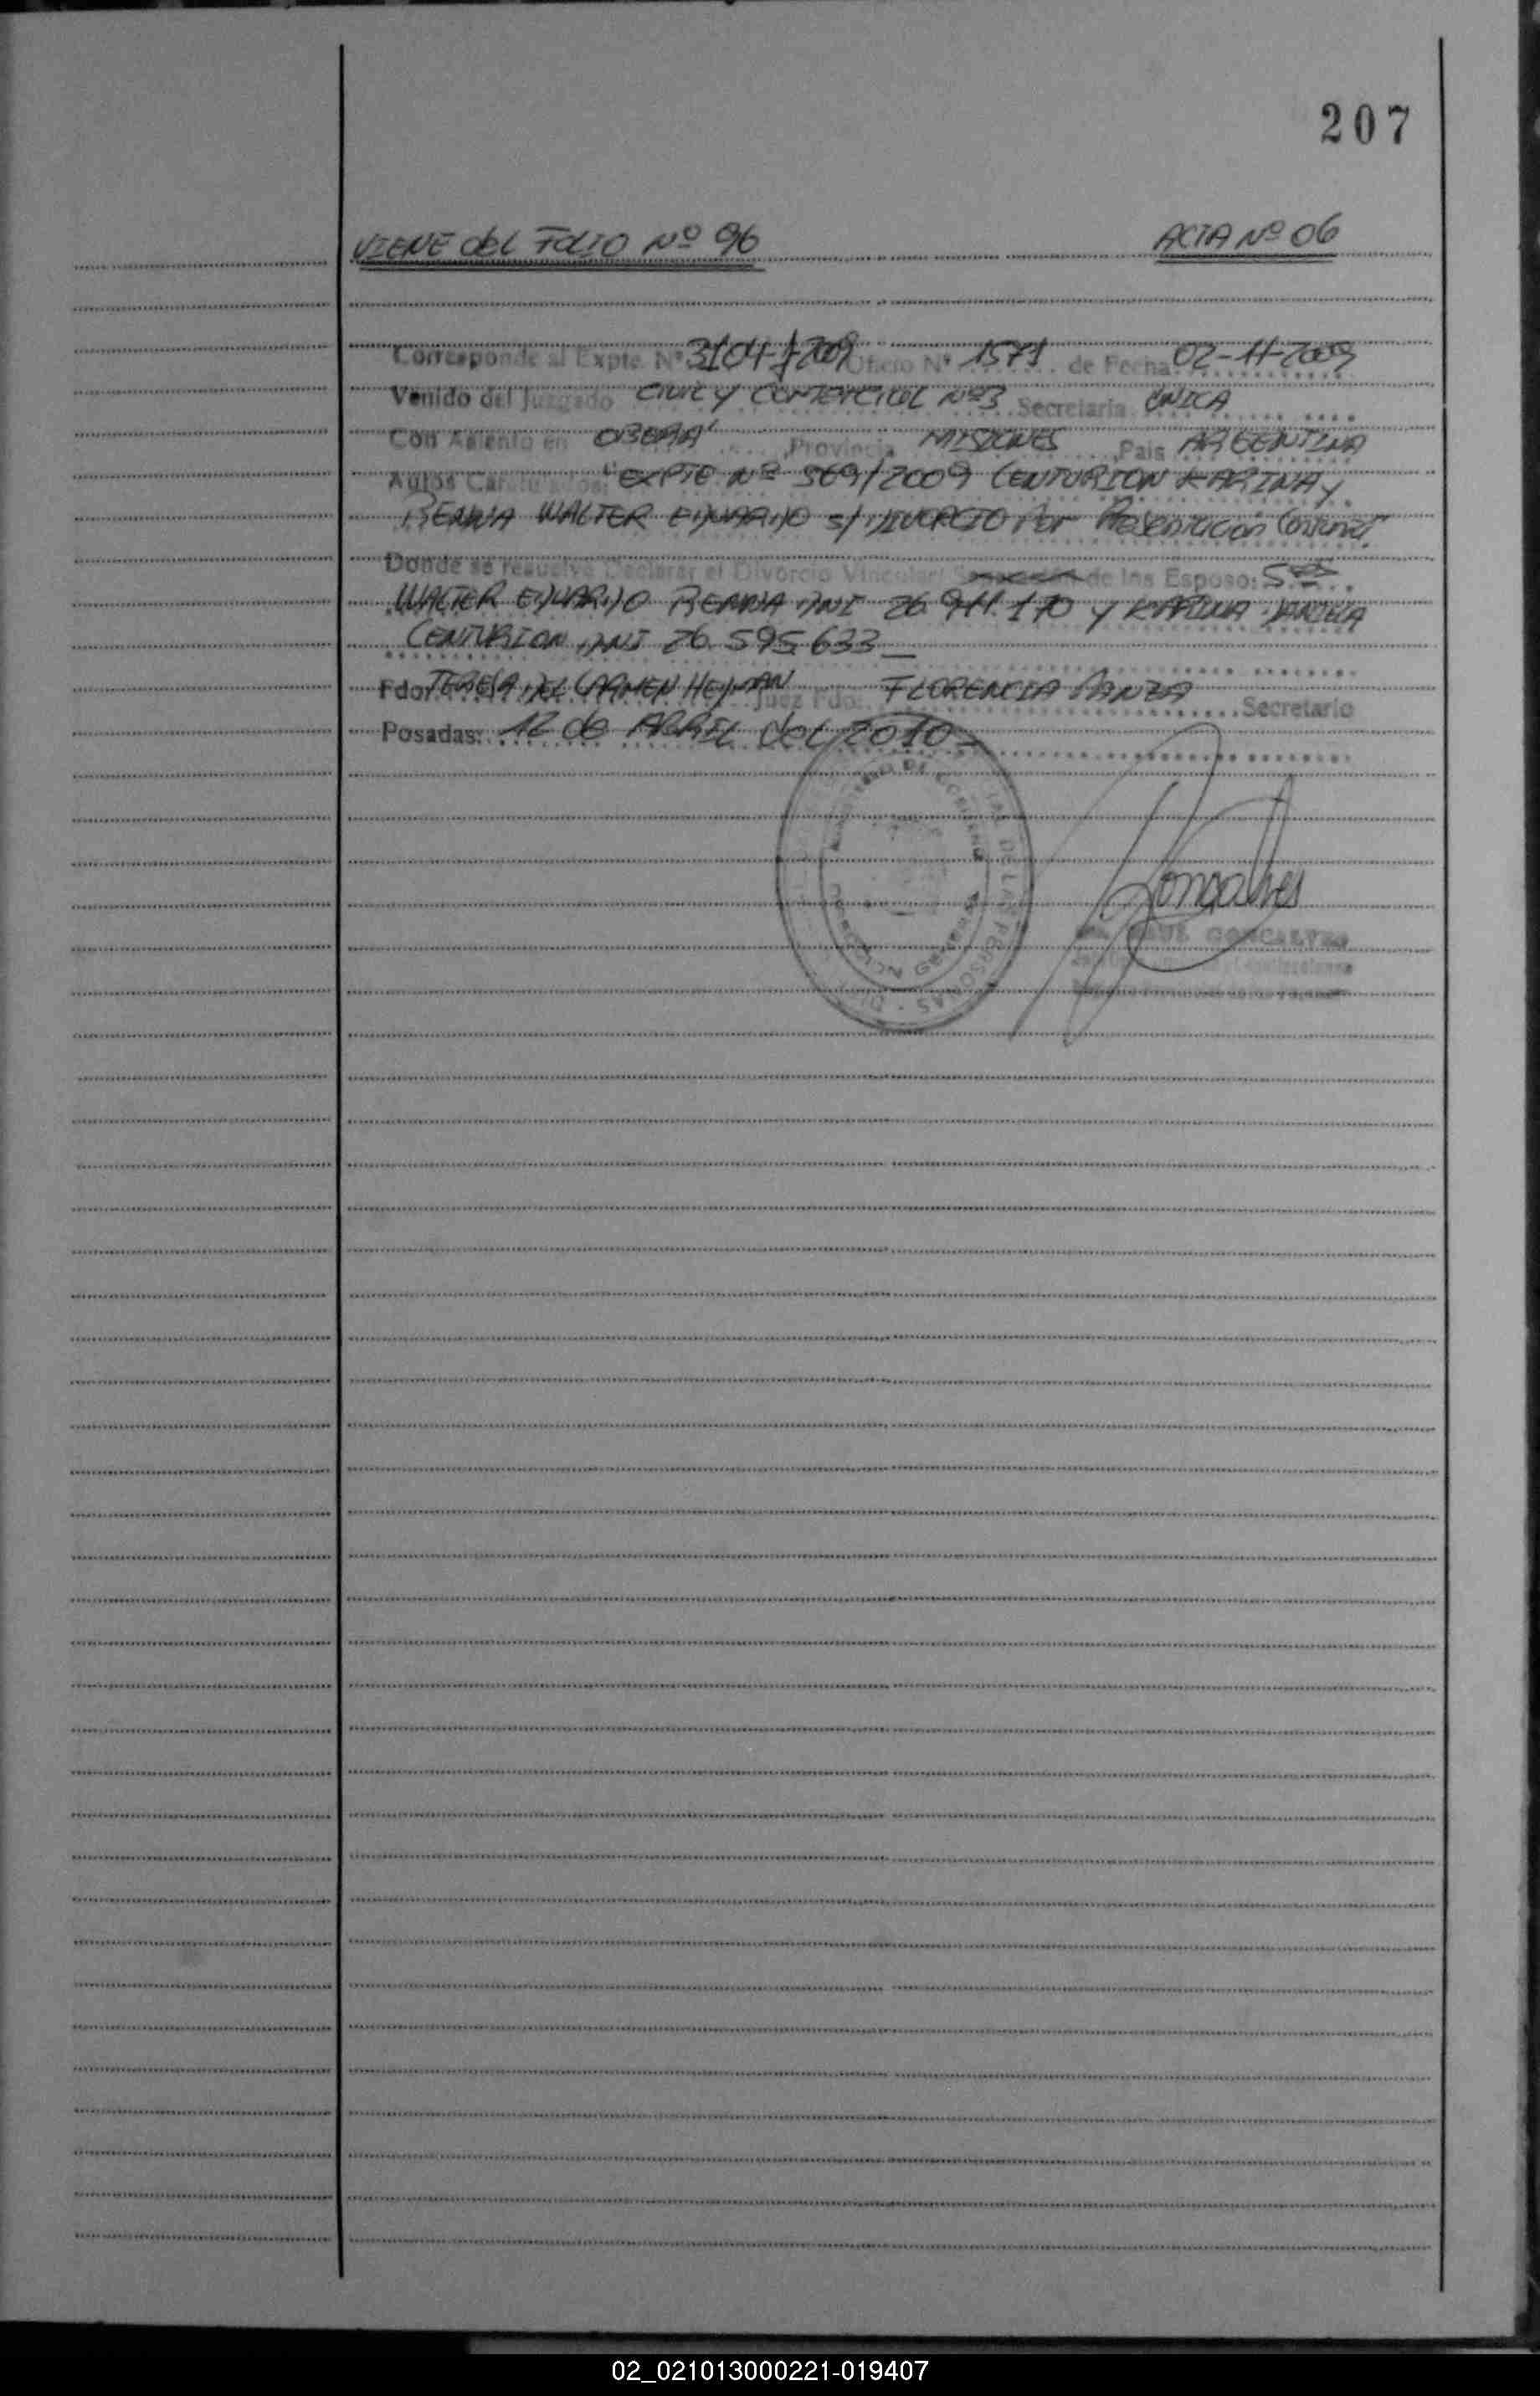 207
VIENE del FOLIO Nº 96 ACTA Nº 06
Corresponde al Expte. Nº 3104-J-2009 Oficio Nº 1571 de Fecha: 02-11-2009
Venido del Juzgado CIVIL Y COMERCIAL Nº3 Secretaria UNICA
Con Asiento en OBERA' Provincia MISIONES Pais ARGENTINA
Autos Caratulados: "EXPTE Nº 569/2009 CENTURION KARINA Y
WALTER EDUARDO S/ DIVORCIO Por Presentacion
Donde se resuelve Declarar el Divorcio Vincular/ de los Esposo: S
WALTER EDUARDO DNI 26.911.170 Y KARINA
CENTURION DNI 26.595.633
Fdo: TERESA DEL CARMEN HEDMAN Juez Fdo: FLORENCIA PANZA Secretario
Posadas: 12 de ABRIL del 2010
DE LAS PERSONAS
Goncalves
RAUL GONCALVES
02_021013000221-019407